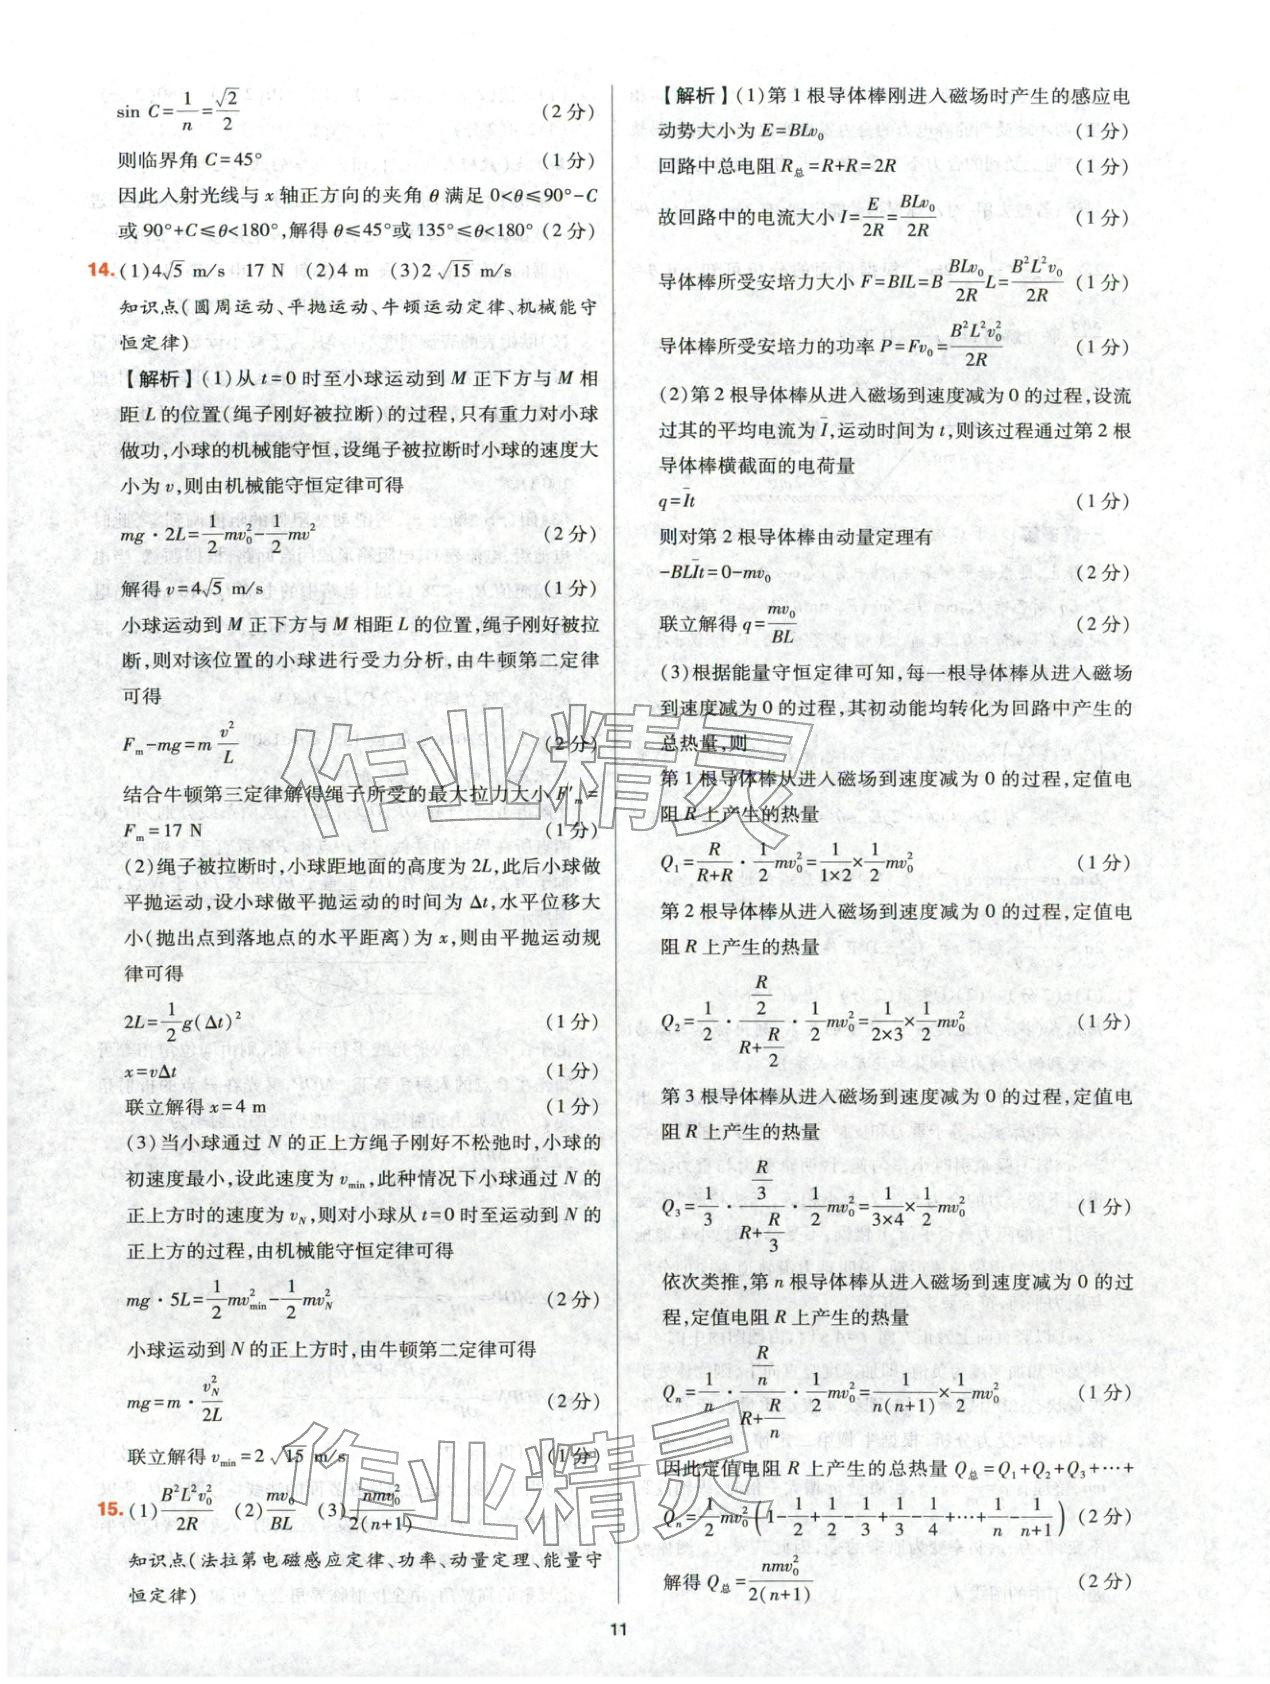 sin C=1/n=√2/2 (2分)
则临界角 C=45° (1分)
因此入射光线与 x 轴正方向的夹角 θ 满足 0<θ≤90°-C
或 90°+C≤θ<180°,解得 θ≤45°或 135°≤θ<180° (2分)
14.(1)4√5 m/s 17 N (2)4 m (3)2√15 m/s
知识点(圆周运动、平抛运动、牛顿运动定律、机械能守
恒定律)
【解析】(1)从 t=0 时至小球运动到 M 正下方与 M 相
距 L 的位置(绳子刚好被拉断)的过程,只有重力对小球
做功,小球的机械能守恒,设绳子被拉断时小球的速度大
小为 v,则由机械能守恒定律可得
mg·2L=1/2mv₀²-1/2mv² (2分)
解得 v=4√5 m/s (1分)
小球运动到 M 正下方与 M 相距 L 的位置,绳子刚好被拉
断,则对该位置的小球进行受力分析,由牛顿第二定律
可得
Fₘ-mg=m v²/L (2分)
结合牛顿第三定律解得绳子所受的最大拉力大小 F′ₘ=
Fₘ=17 N (1分)
(2)绳子被拉断时,小球距地面的高度为 2L,此后小球做
平抛运动,设小球做平抛运动的时间为 Δt,水平位移大
小(抛出点到落地点的水平距离)为 x,则由平抛运动规
律可得
2L=1/2g(Δt)² (1分)
x=vΔt (1分)
联立解得 x=4 m (1分)
(3)当小球通过 N 的正上方绳子刚好不松弛时,小球的
初速度最小,设此速度为 v_min,此种情况下小球通过 N 的
正上方时的速度为 v_N,则对小球从 t=0 时至运动到 N 的
正上方的过程,由机械能守恒定律可得
mg·5L=1/2mv²_min-1/2mv²_N (2分)
小球运动到 N 的正上方时,由牛顿第二定律可得
mg=m·v²_N/2L (2分)
联立解得 v_min=2√15 m/s (1分)
15.(1)B²L²v₀²/2R (2)mv₀/BL (3)nmv₀²/2(n+1)
知识点(法拉第电磁感应定律、功率、动量定理、能量守
恒定律)
【解析】(1)第 1 根导体棒刚进入磁场时产生的感应电
动势大小为 E=BLv₀ (1分)
回路中总电阻 R总=R+R=2R (1分)
故回路中的电流大小 I=E/2R=BLv₀/2R (1分)
导体棒所受安培力大小 F=BIL=B BLv₀/2R L=B²L²v₀/2R (1分)
导体棒所受安培力的功率 P=Fv₀=B²L²v₀²/2R (1分)
(2)第 2 根导体棒从进入磁场到速度减为 0 的过程,设流
过其的平均电流为 I̅,运动时间为 t,则该过程通过第 2 根
导体棒横截面的电荷量
q=I̅t (1分)
则对第 2 根导体棒由动量定理有
-BLI̅t=0-mv₀ (2分)
联立解得 q=mv₀/BL (2分)
(3)根据能量守恒定律可知,每一根导体棒从进入磁场
到速度减为 0 的过程,其初动能均转化为回路中产生的
总热量,则
第 1 根导体棒从进入磁场到速度减为 0 的过程,定值电
阻 R 上产生的热量
Q₁=R/(R+R)·1/2mv₀²=1/(1×2)×1/2mv₀² (1分)
第 2 根导体棒从进入磁场到速度减为 0 的过程,定值电
阻 R 上产生的热量
Q₂=1/2·(R/2)/(R+R/2)·1/2mv₀²=1/(2×3)×1/2mv₀² (1分)
第 3 根导体棒从进入磁场到速度减为 0 的过程,定值电
阻 R 上产生的热量
Q₃=1/3·(R/3)/(R+R/3)·1/2mv₀²=1/(3×4)×1/2mv₀² (1分)
依次类推,第 n 根导体棒从进入磁场到速度减为 0 的过
程,定值电阻 R 上产生的热量
Qₙ=1/n·(R/n)/(R+R/n)·1/2mv₀²=1/n(n+1)×1/2mv₀² (1分)
因此定值电阻 R 上产生的总热量 Q总=Q₁+Q₂+Q₃+…+
Qₙ=1/2mv₀²(1-1/2+1/2-1/3+1/3-1/4+…+1/n-1/(n+1)) (2分)
解得 Q总=nmv₀²/2(n+1) (2分)
11
作业精灵
作业精灵